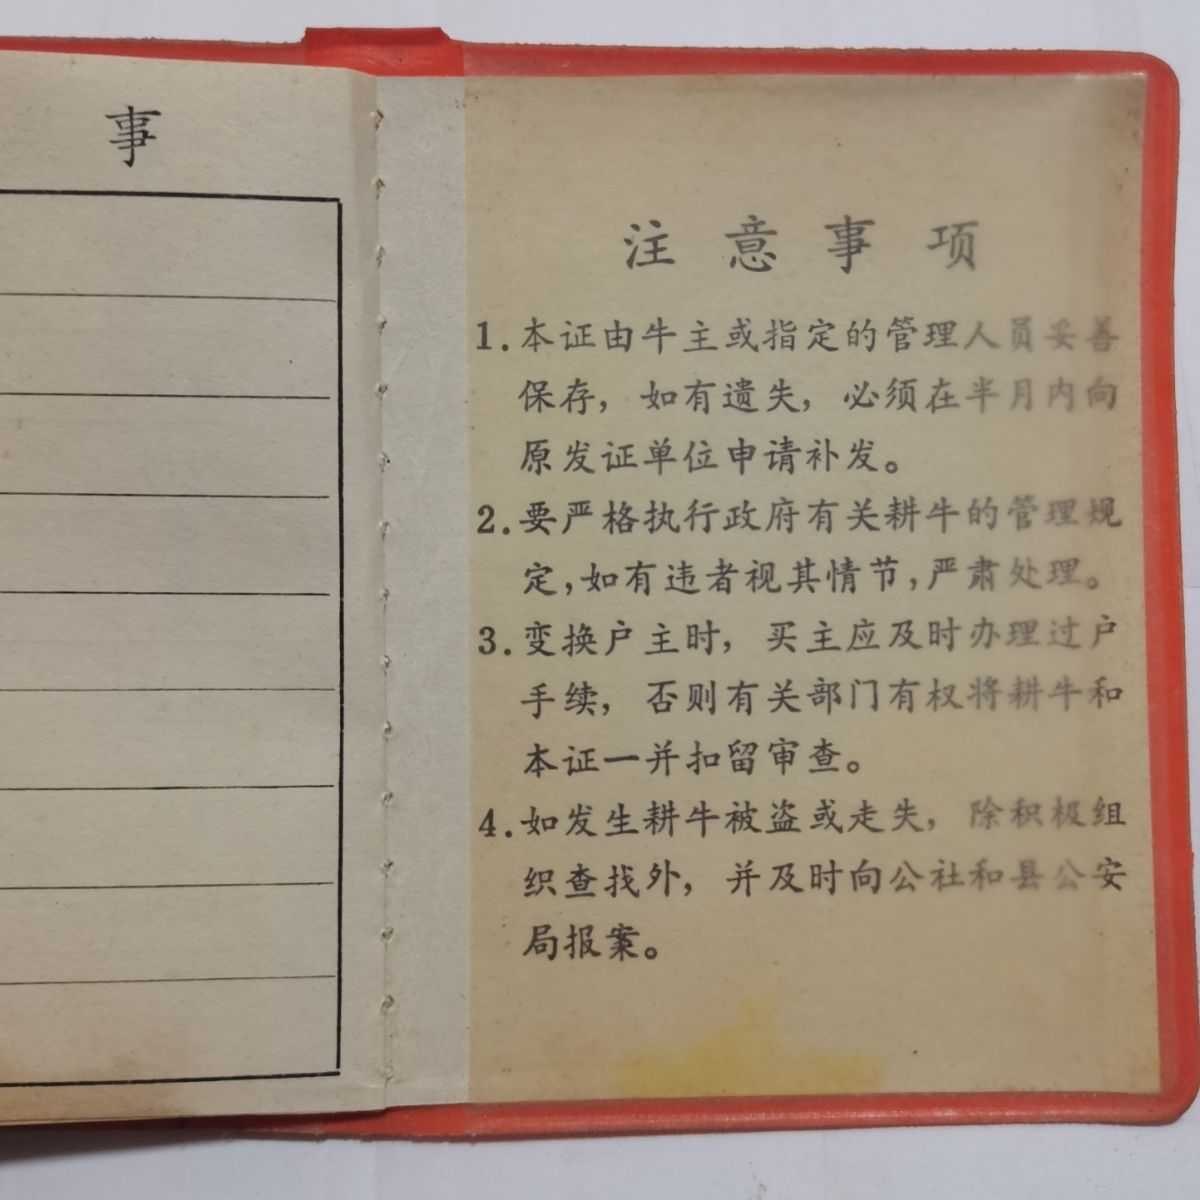 事
注意事项
1.本证由牛主或指定的管理人员妥善
保存，如有遗失，必须在半月内向
原发证单位申请补发。
2.要严格执行政府有关耕牛的管理规
定，如有违者视其情节，严肃处理。
3.变换户主时，买主应及时办理过户
手续，否则有关部门有权将耕牛和
本证一并扣留审查。
4.如发生耕牛被盗或走失，除积极组
织查找外，并及时向公社和县公安
局报案。